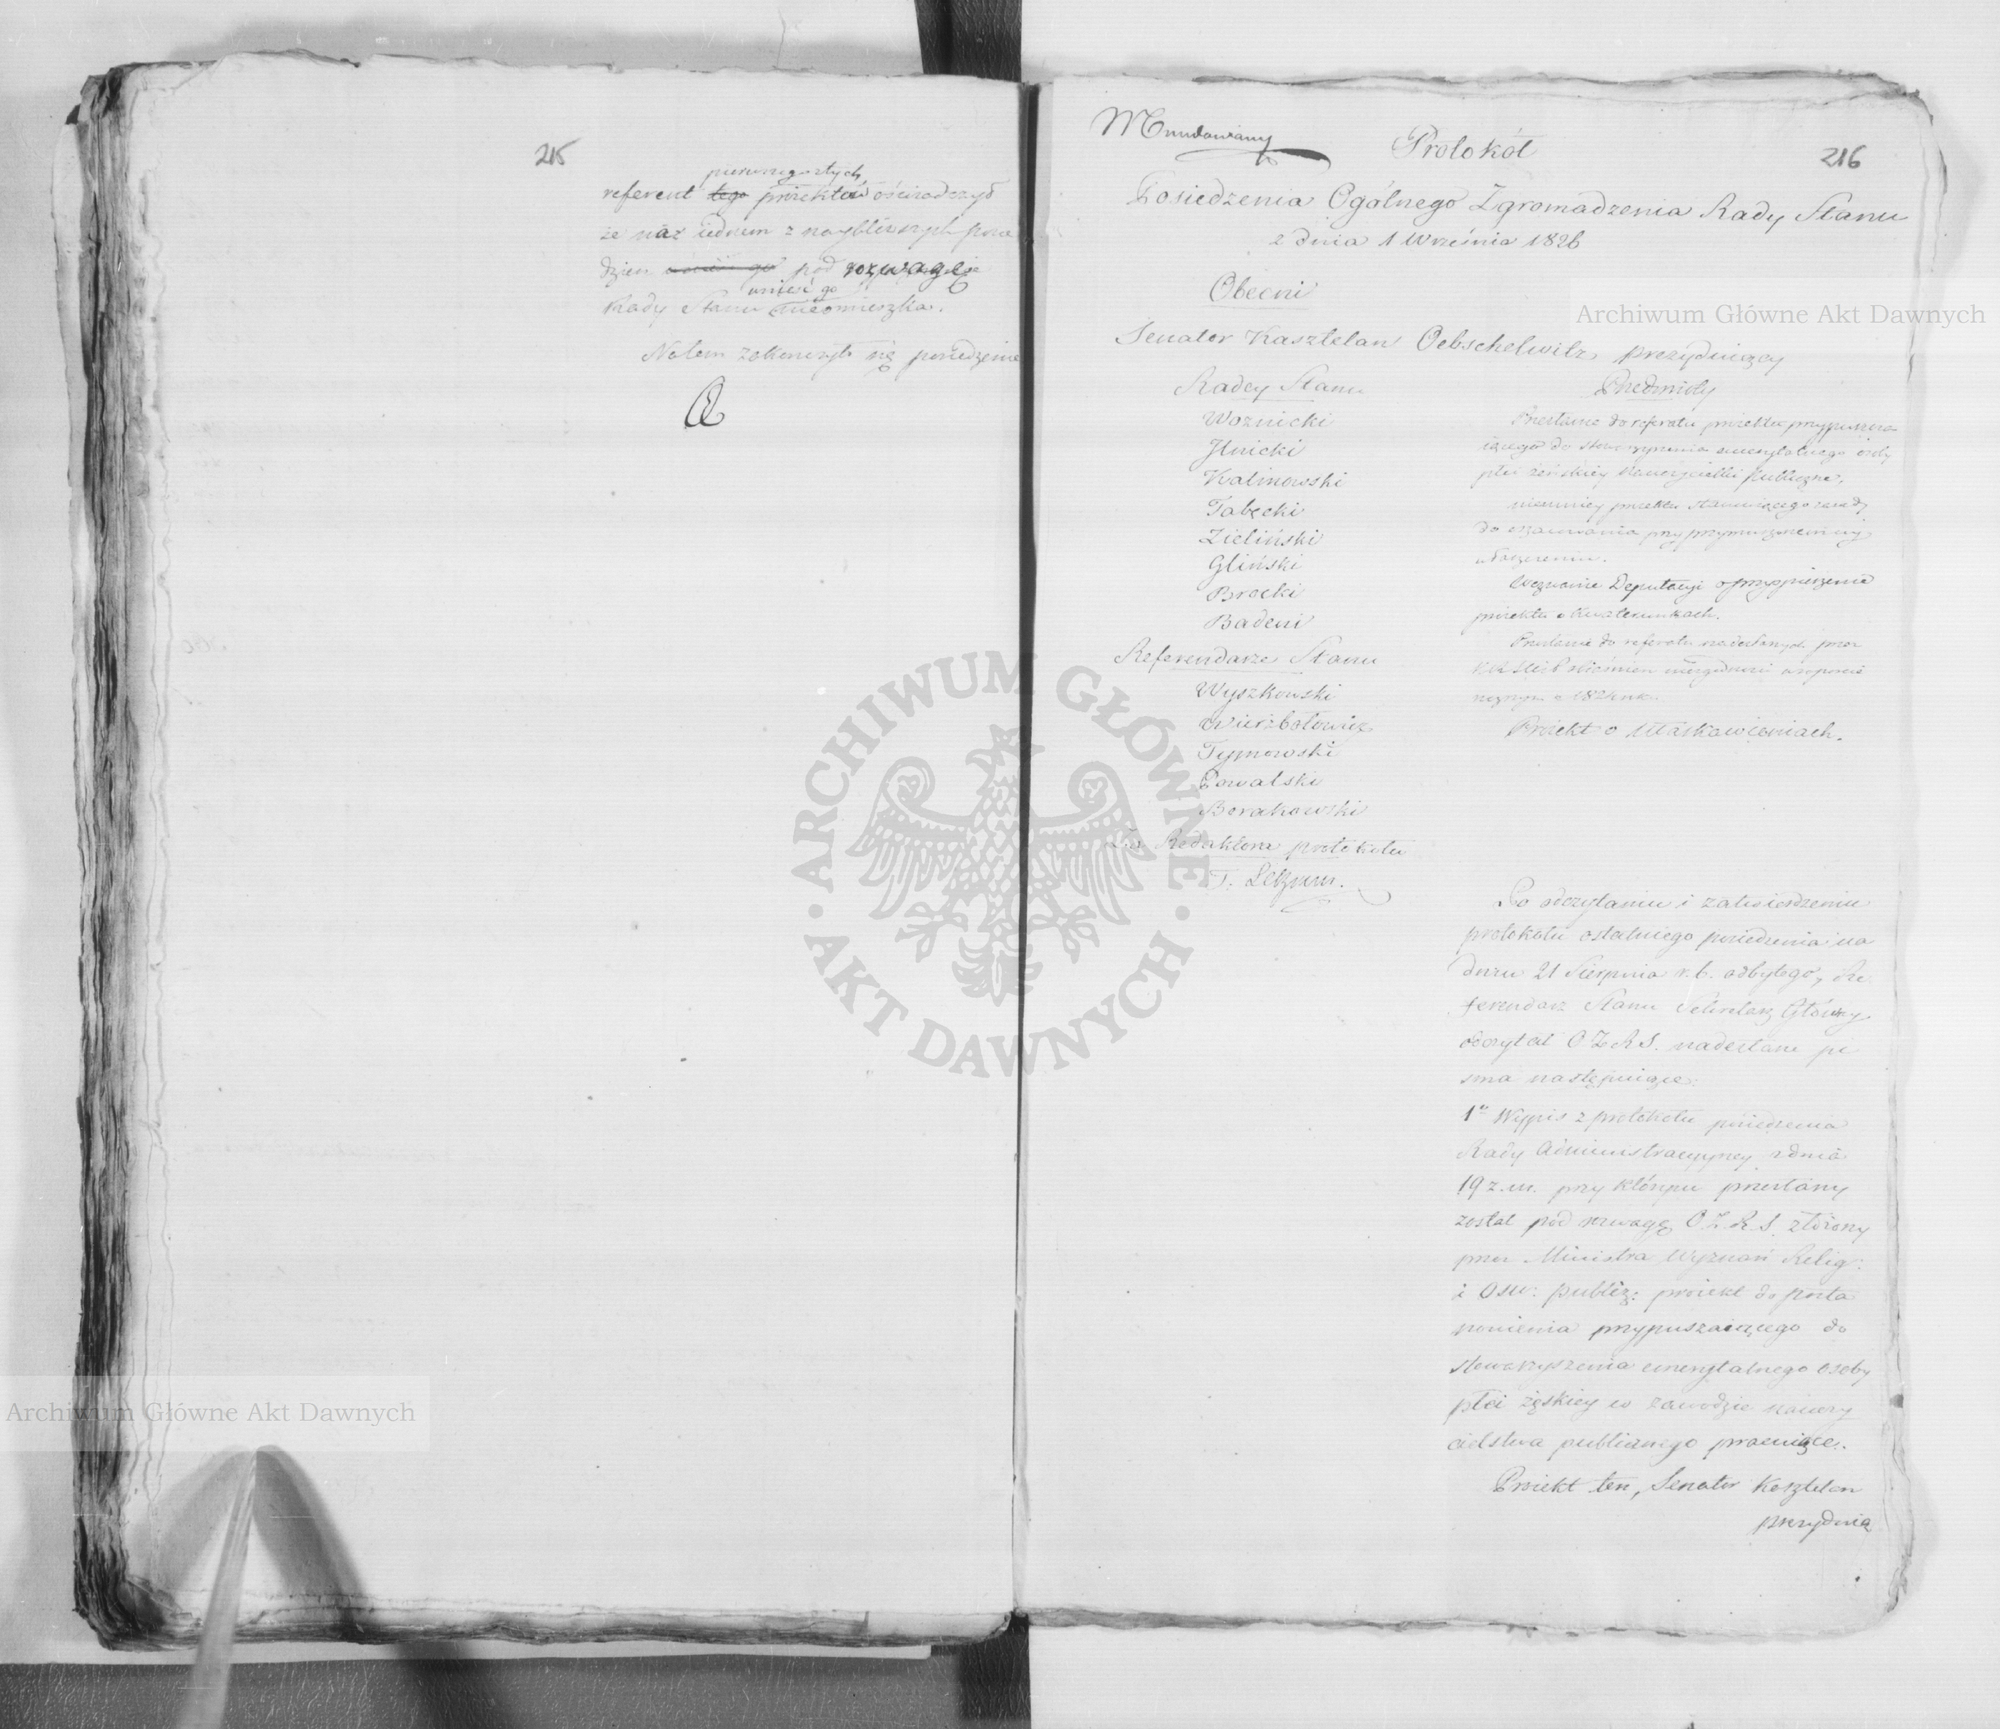 215
pierwszego z tych
referent tego proiektów oświadczył
że na iednem z naybliższych posie
dzień pod rozwagę
wnieść go
Rady Stanu nieomieszka.
Na tem zakończyło się posiedzenie
Mundowany
Protokół
216
Posiedzenia Ogólnego Zgromadzenia Rady Stanu
z dnia 1 Września 1826
Obecni
Senator Kasztelan Oebschelwitz, prezyduiący
Radcy Stanu
Woznicki
Ilnicki
Kalinowski
Tabęcki
Zieliński
Gliński
Brocki
Badeni
Referendarze Stanu
Wyszkowski
Wierzbołowicz
Tymowski
Kowalski
Borakowski
Za Redaktora protokołu
Przedmioty
Przesłanie do referatu proiektu przypuszcza-
iącego do stowarzyszenia emerytalnego osoby
płci żeńskiey Nauczycielki publiczne,
niemniey proiektu stanowiącego zasady
do szacowania przy przymuszonem wy
właszczeniu.
Wezwanie Deputacyi o przyspieszenie
proiektu o kwaterunkach.
Przesłanie do referatu nadesłanych przez
Proiekt o Ułaskawieniach.
Po odczytaniu i zatwierdzeniu
protokołu ostatniego posiedzenia na
dniu 21 Sierpnia r. b. odbytego, Re
ferendarz Stanu Sekretarz Główny
odczytał O. Z. R. S. nadesłane pi
sma następuiące:
1o Wypis z protokołu posiedzenia
Rady Administracyyney z dnia
19 z. m. przy którym przesłany
został pod rozwagę O. Z. R. S. złożony
przez Ministra Wyznań Relig:
i Ośw: publicz: proiekt do posta
nowienia przypuszczaiącego do
stowarzyszenia emerytalnego osoby
płci żęskiey w zawodzie nauczy
cielstwa publicznego pracuiące.
Proiekt ten, Senator Kasztelan
prezyduią
Archiwum Główne Akt Dawnych
Archiwum Główne Akt Dawnych
ARCHIWUM GŁÓWNE AKT DAWNYCH